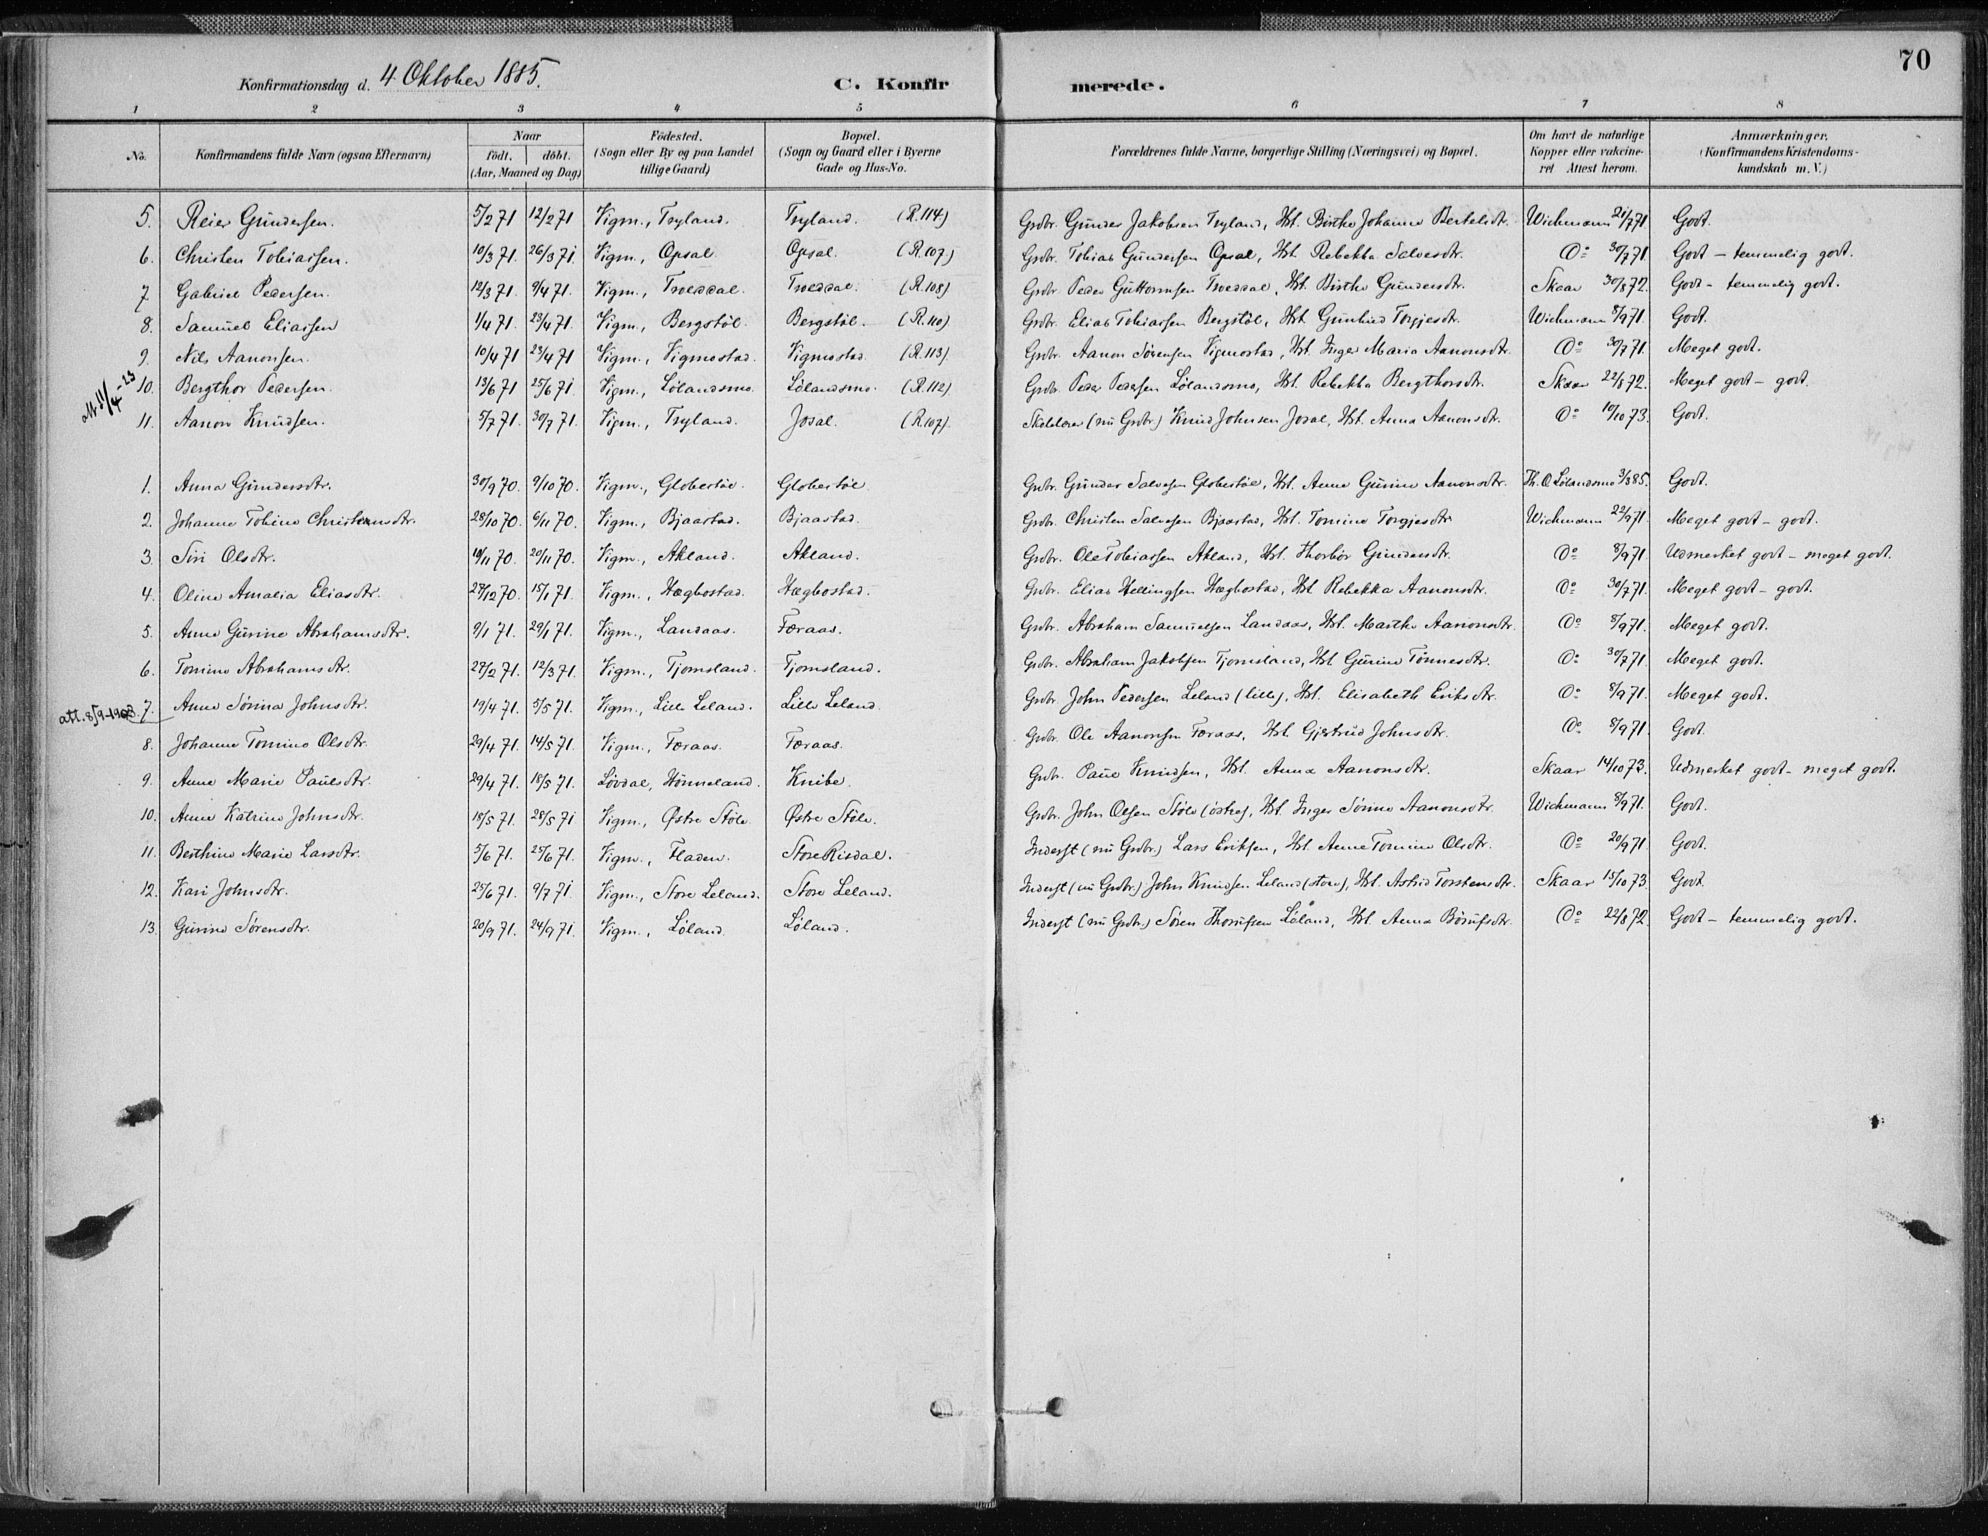 70
Konfirmationsdag d. 4 Oktober 1885.
C. Konfirmerede.
1 2 3 4 5 6 7 8
No. Konfirmandens fulde Navn (ogsaa Efternavn) Naar født. døbt. (Aar, Maaned og Dag) Fødested. (Sogn eller By og paa Landet tillige Gaard) Bopæl. (Sogn og Gaard eller i Byerne Gade og Hus-No. Forældrenes fulde Navne, borgerlige Stilling (Næringsvei) og Bopæl. Om havt de naturlige Kopper eller vakcineret Attest herom. Anmærkninger. (Konfirmandens Kristendomskundskab m. V.)
5. Reier Gundersen. 5/2 71 12/2 71 Vigm., Tryland. Tryland. (R. 114) Grdbr. Gunder Jakobsen Tryland, Hst. Birthe Johanne Bertelsdtr. Wichmann 21/7 71. Godt.
6. Christen Tobiassen. 10/3 71. 26/3 71. Vigm., Opsal. Opsal. (R. 107.) Grdbr. Tobias Gundersen Opsal, Hst. Rebekka Salvesdtr. Do 30/7 71. Godt – temmelig godt.
7. Gabriel Pedersen. 12/3 71. 9/4 71. Vigm., Troeddal. Troeddal. (R. 108) Grdbr. Peder Guttormsen Troeddal, Hst. Birthe Gundersdtr. Skaar 30/8 72. Godt – temmelig godt.
8. Samuel Eliassen 1/4 71. 23/4 71. Vigm., Bergstøl. Bergstøl. (R. 110) Grdbr. Elias Tobiassen Bergstøl, Hst. Gunhild Torgjesdtr. Wichmann 8/9 71. Godt.
9. Nils Aanonsen. 10/4 71 23/4 71. Vigm., Vigmostad. Vigmostad. (R. 113) Grdbr. Aanon Sørensen Vigmostad, Hst. Inger Maria Aanonsdtr. Do 30/7 71. Meget godt.
att 11/4 -23 10. Bergthor Pedersen. 13/6 71 25/6 71 Vigm., Lølandsmo. Lølandsmo. (R. 112) Grdbr. Peder Pedersen Lølandsmo, Hst. Rebekka Bergthorsdtr. Skaar 22/8 72. Meget godt – godt.
11. Aanon Knudsen. 5/7 71. 30/7 71. Vigm., Tryland. Josal. (R. 107) Skolelærer (nu Grdbr.) Knud Johnsen Josal, Hst. Anna Aanonsdtr. Do 10/10 73. Godt.
1. Anna Gundersdtr. 30/9 70. 9/10 70. Vigm., Globestøl. Globestøl Grdbr. Gunder Salvesen Globestøl, Hst. Anne Gurine Aanonsdtr. Th. O. Lølandsmo 3/3 85. Godt.
2. Johanne Tobine Christensdtr. 28/10 70. 6/11 70. Vigm., Bjaastad. Bjaastad. Grdbr. Christen Salvesen Bjaastad, Hst. Tomine Torgjesdtr Wichmann 22/9 71. Meget godt – godt.
3. Siri Olsdtr. 19/11 70. 20/11 70. Vigm., Akland. Akland. Grdbr. Ole Tobiassen Akland, Hst. Thorbør Gundersdtr. Do 8/9 71 Udmerket godt – meget godt.
4. Oline Amalia Eliasdtr. 27/12 70. 15/1 71. Vigm., Hægbostad. Hægbostad. Grdbr. Elias Hellingsen Hægbostad, Hst Rebekka Aanonsdtr. Do 30/7 71. Meget godt – godt.
5. Anne Gurine Abrahamsdtr. 9/1 71. 29/1 71. Vigm., Landaas. Færaas. Grdbr. Abraham Samuelsen Landaas, Hst. Marthe Aanonsdtr. Do 8/9 71. Meget godt.
6. Tomine Abrahamsdtr. 27/2 71. 12/3 71. Vigm., Tjomsland. Tjomsland. Grdbr. Abraham Jakobsen Tjomsland, Hst Gurine Tønnesdtr. Do 30/7 71. Meget godt.
att. 8/9-1908. 7. Anne Sørina Johnsdtr. 19/4 71. 5/5 71. Vigm., Lille Leland. Lille Leland. Grdbr John Pedersen Leland (lille), Hst. Elisabeth Eriksdtr. Do 8/9 71. Meget godt.
8. Johanne Tomine Olsdtr. 29/4 71. 14/5 71. Vigm., Færaas. Færaas. Grdbr. Ole Aanonsen Færaas, Hst. Gjertrud Johnsdtr. Do 8/9 71. Godt.
9. Anne Marie Paulsdtr. 29/4 71. 18/5 71. Løvdal, Hønneland. Knibe. Grdbr. Paul Knudsen, Hst. Anna Aanonsdtr. Skaar 14/10 73. Udmerket godt – meget godt.
10. Anne Katrine Johnsdtr. 18/5 71. 28/5 71 Vigm., Østre Støle. Østre Støle. Grdbr. John Olsen Støle (østre), Hst. Inger Sørine Aanonsdtr. Wichmann 8/9 71. Godt.
11. Berthine Marie Larsdtr. 5/6 71. 25/6 71. Vigm., Fladen. Store Risdal. Inderst (nu Grdbr.) Lars Eriksen, Hst. Anne Tomine Olsdtr. Do 20/9 71 Godt.
12. Kari Johnsdtr. 25/6 71. 9/7 71 Vigm., Store Leland. Store Leland. Inderst (nu Grdbr.) John Knudsen Leland (store), Hst. Astrid Torstensdtr. Skaar 15/10 73. Godt
13. Gurine Sørensdtr. 20/9 71. 24/9 71. Vigm., Løland. Løland. Inderst (nu Grdbr.) Søren Thorulfsen Løland, Hst. Anna Børufsdtr. Do 22/8 72. Godt – temmelig godt.